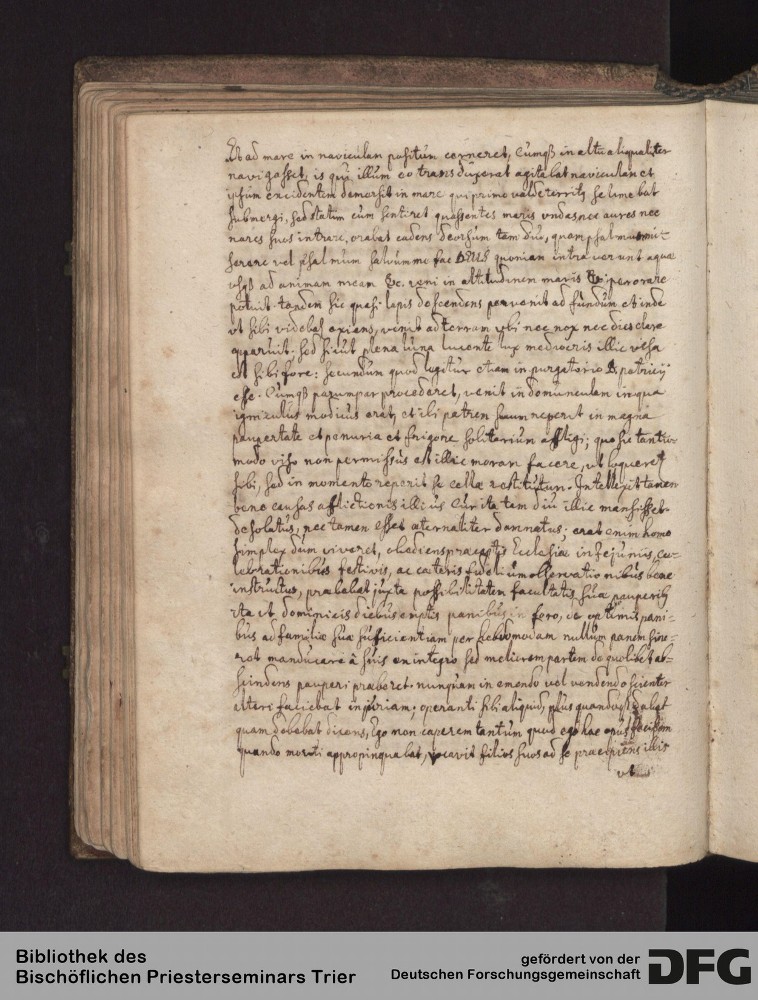 Et ad mare in naviculam positum cerneret, Cumq3 in altu aliqualiter
navigasset, is qui illum eo transduxerat agitabat naviculam et
ipsum excidentem demersit in mare qui primo valde territus se timebat
submergi, sed statim cum sentiret quassantes maris undas nec aures nec
nares suos intrare, orabat cadens deorsum tam diu, quam psalmum mi-
serere vel psalmum salvum me fac DEUS quoniam intraverunt aquæ
usq3 ad animam meam &c. veni in altitudinem maris &c perorare
potuit. tandem sic quasi lapis descendens pervenit ad fundum et inde
ut sibi videbat exiens, venit ad terram ubi nec nox nec dies clare
apparuit. sed sicut plena luna lucente lux mediocris illic visa
est sibi fore: secundum quod legitur etiam in purgatorio S. patricij
esse. Cumq3 parumper procederet, venit in domunculam in qua
igniculus modicus erat, et ibi patrem suum reperit in magna
paupertate et penuria et frigore solitarium affligi; quo sic tantum-
modo viso non permissus est illic moram facere, ut loqueret
sibi, sed in momento reperit se cellæ restitutum. Intellexit tamen
bene causas afflictionis illius cur ita tam diu illic mansisset
desolatus, nec tamen esset æternaliter damnatus; erat enim homo
simplex dum viveret, obediens præceptis Ecclesiæ in jejunijs, ce-
lebrationibus festivis, ac cæteris fidelium observationibus bene
instructus, præbebat juxta possibilitatem facultatis suæ pauperib3
ita ut dominicis diebus emptis panibus in foro, de optimis pani-
bus ad familiæ suæ sufficientiam per hebdomodam nullum panem sine-
ret manducare à suis en integro sed meliorem partem de quolibet ab-
scindens pauperi præberet. nunquam in emendo vel vendendo scienter
alteri faciebat injuriam; operanti sibi aliquid, plus quandoq3 dabat
quam debebat dicens, Ego non caperem tantum quod ego hac opus fecissem
quando morti appropinquabat, vocavit filios suos ad se præcipiens illis
ut
Bibliothek des
Bischöflichen Priesterseminars Trier
gefördert von der
Deutschen Forschungsgemeinschaft
DFG